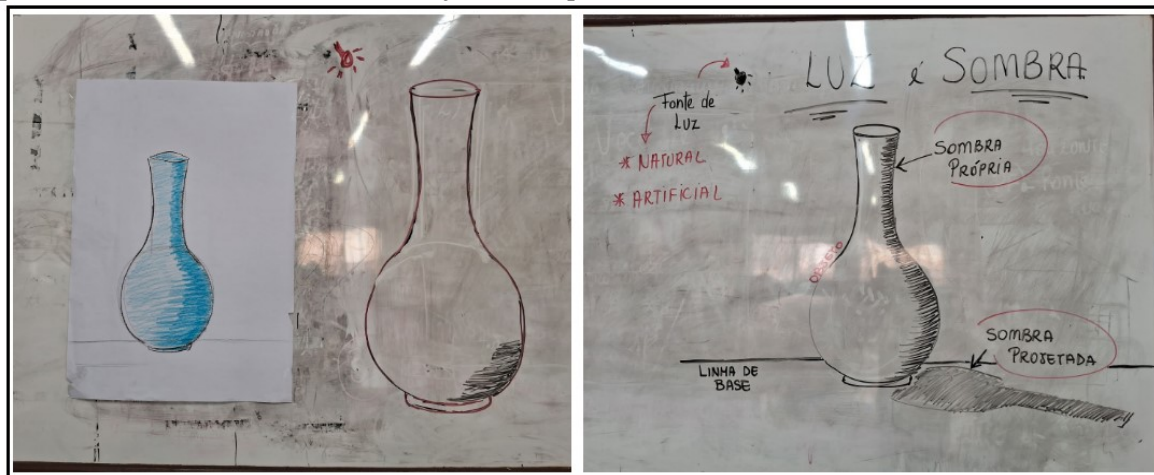 LUZ e SOMBRA
Fonte de
Luz
* NATURAL
* ARTIFICIAL
SOMBRA
PRÓPRIA
OBJETO
SOMBRA
PROJETADA
LINHA DE
BASE